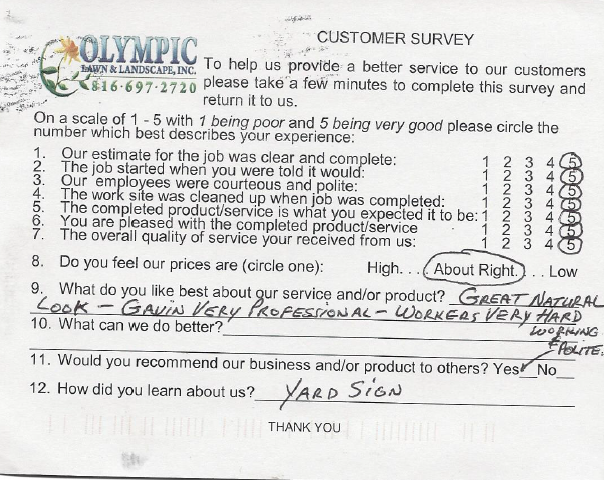 OLYMPIC
LAWN & LANDSCAPE, INC.
816·697·2720
CUSTOMER SURVEY
To help us provide a better service to our customers
please take a few minutes to complete this survey and
return it to us.
On a scale of 1 - 5 with 1 being poor and 5 being very good please circle the
number which best describes your experience:
1. Our estimate for the job was clear and complete: 1 2 3 4 5
2. The job started when you were told it would: 1 2 3 4 5
3. Our employees were courteous and polite: 1 2 3 4 5
4. The work site was cleaned up when job was completed: 1 2 3 4 5
5. The completed product/service is what you expected it to be: 1 2 3 4 5
6. You are pleased with the completed product/service 1 2 3 4 5
7. The overall quality of service your received from us: 1 2 3 4 5
8. Do you feel our prices are (circle one): High. . . About Right. . . Low
9. What do you like best about our service and/or product? GREAT NATURAL
LOOK - GAVIN VERY PROFESSIONAL - WORKERS VERY HARD
WORKING
10. What can we do better?
& POLITE.
11. Would you recommend our business and/or product to others? Yes✓ No
12. How did you learn about us? YARD SIGN
THANK YOU